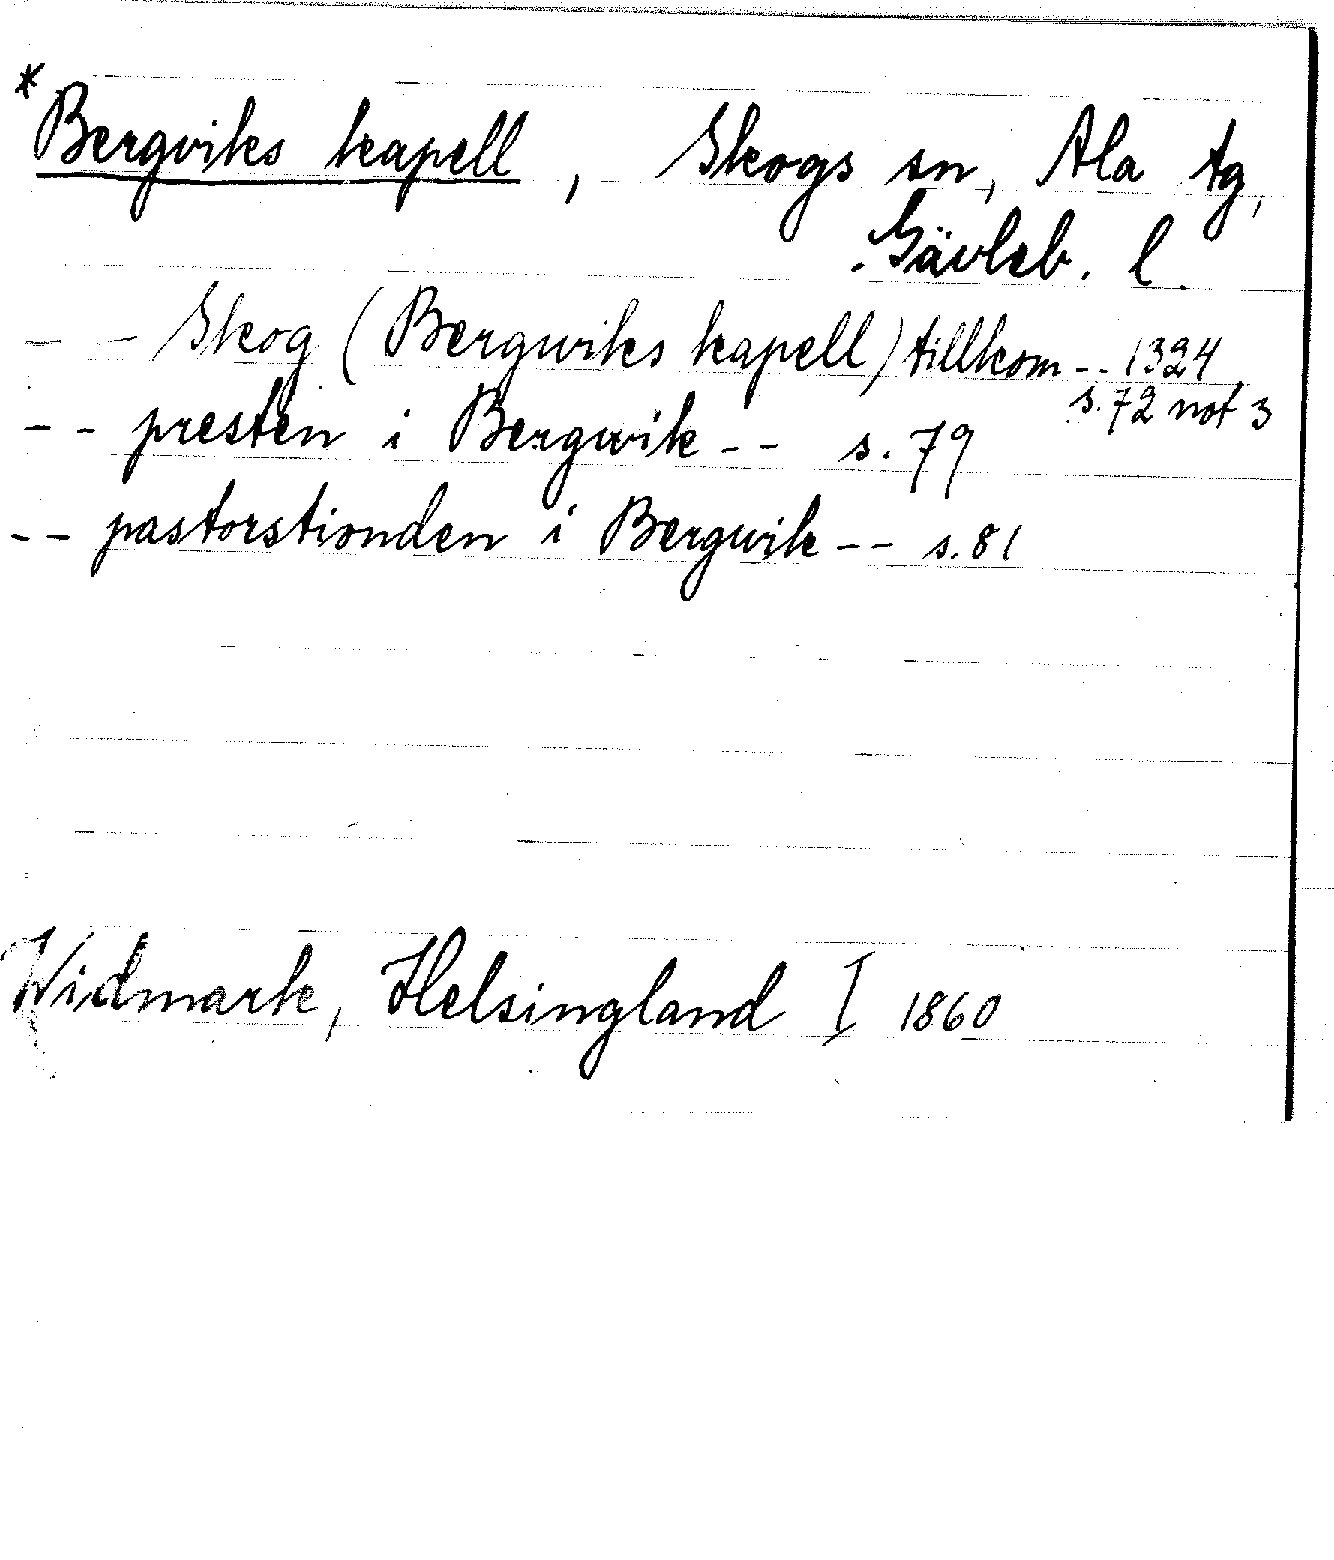 *Bergviks kapell, Skogs sn, Ala tg,
Gävleb. l.
- - Skog (Bergwiks kapell) tillkom -- 1324
s. 72 not 3
- - presten i Bergwik -- s. 79
- - pastorstionden i Bergwik -- s. 81
Widmark, Helsingland I 1860